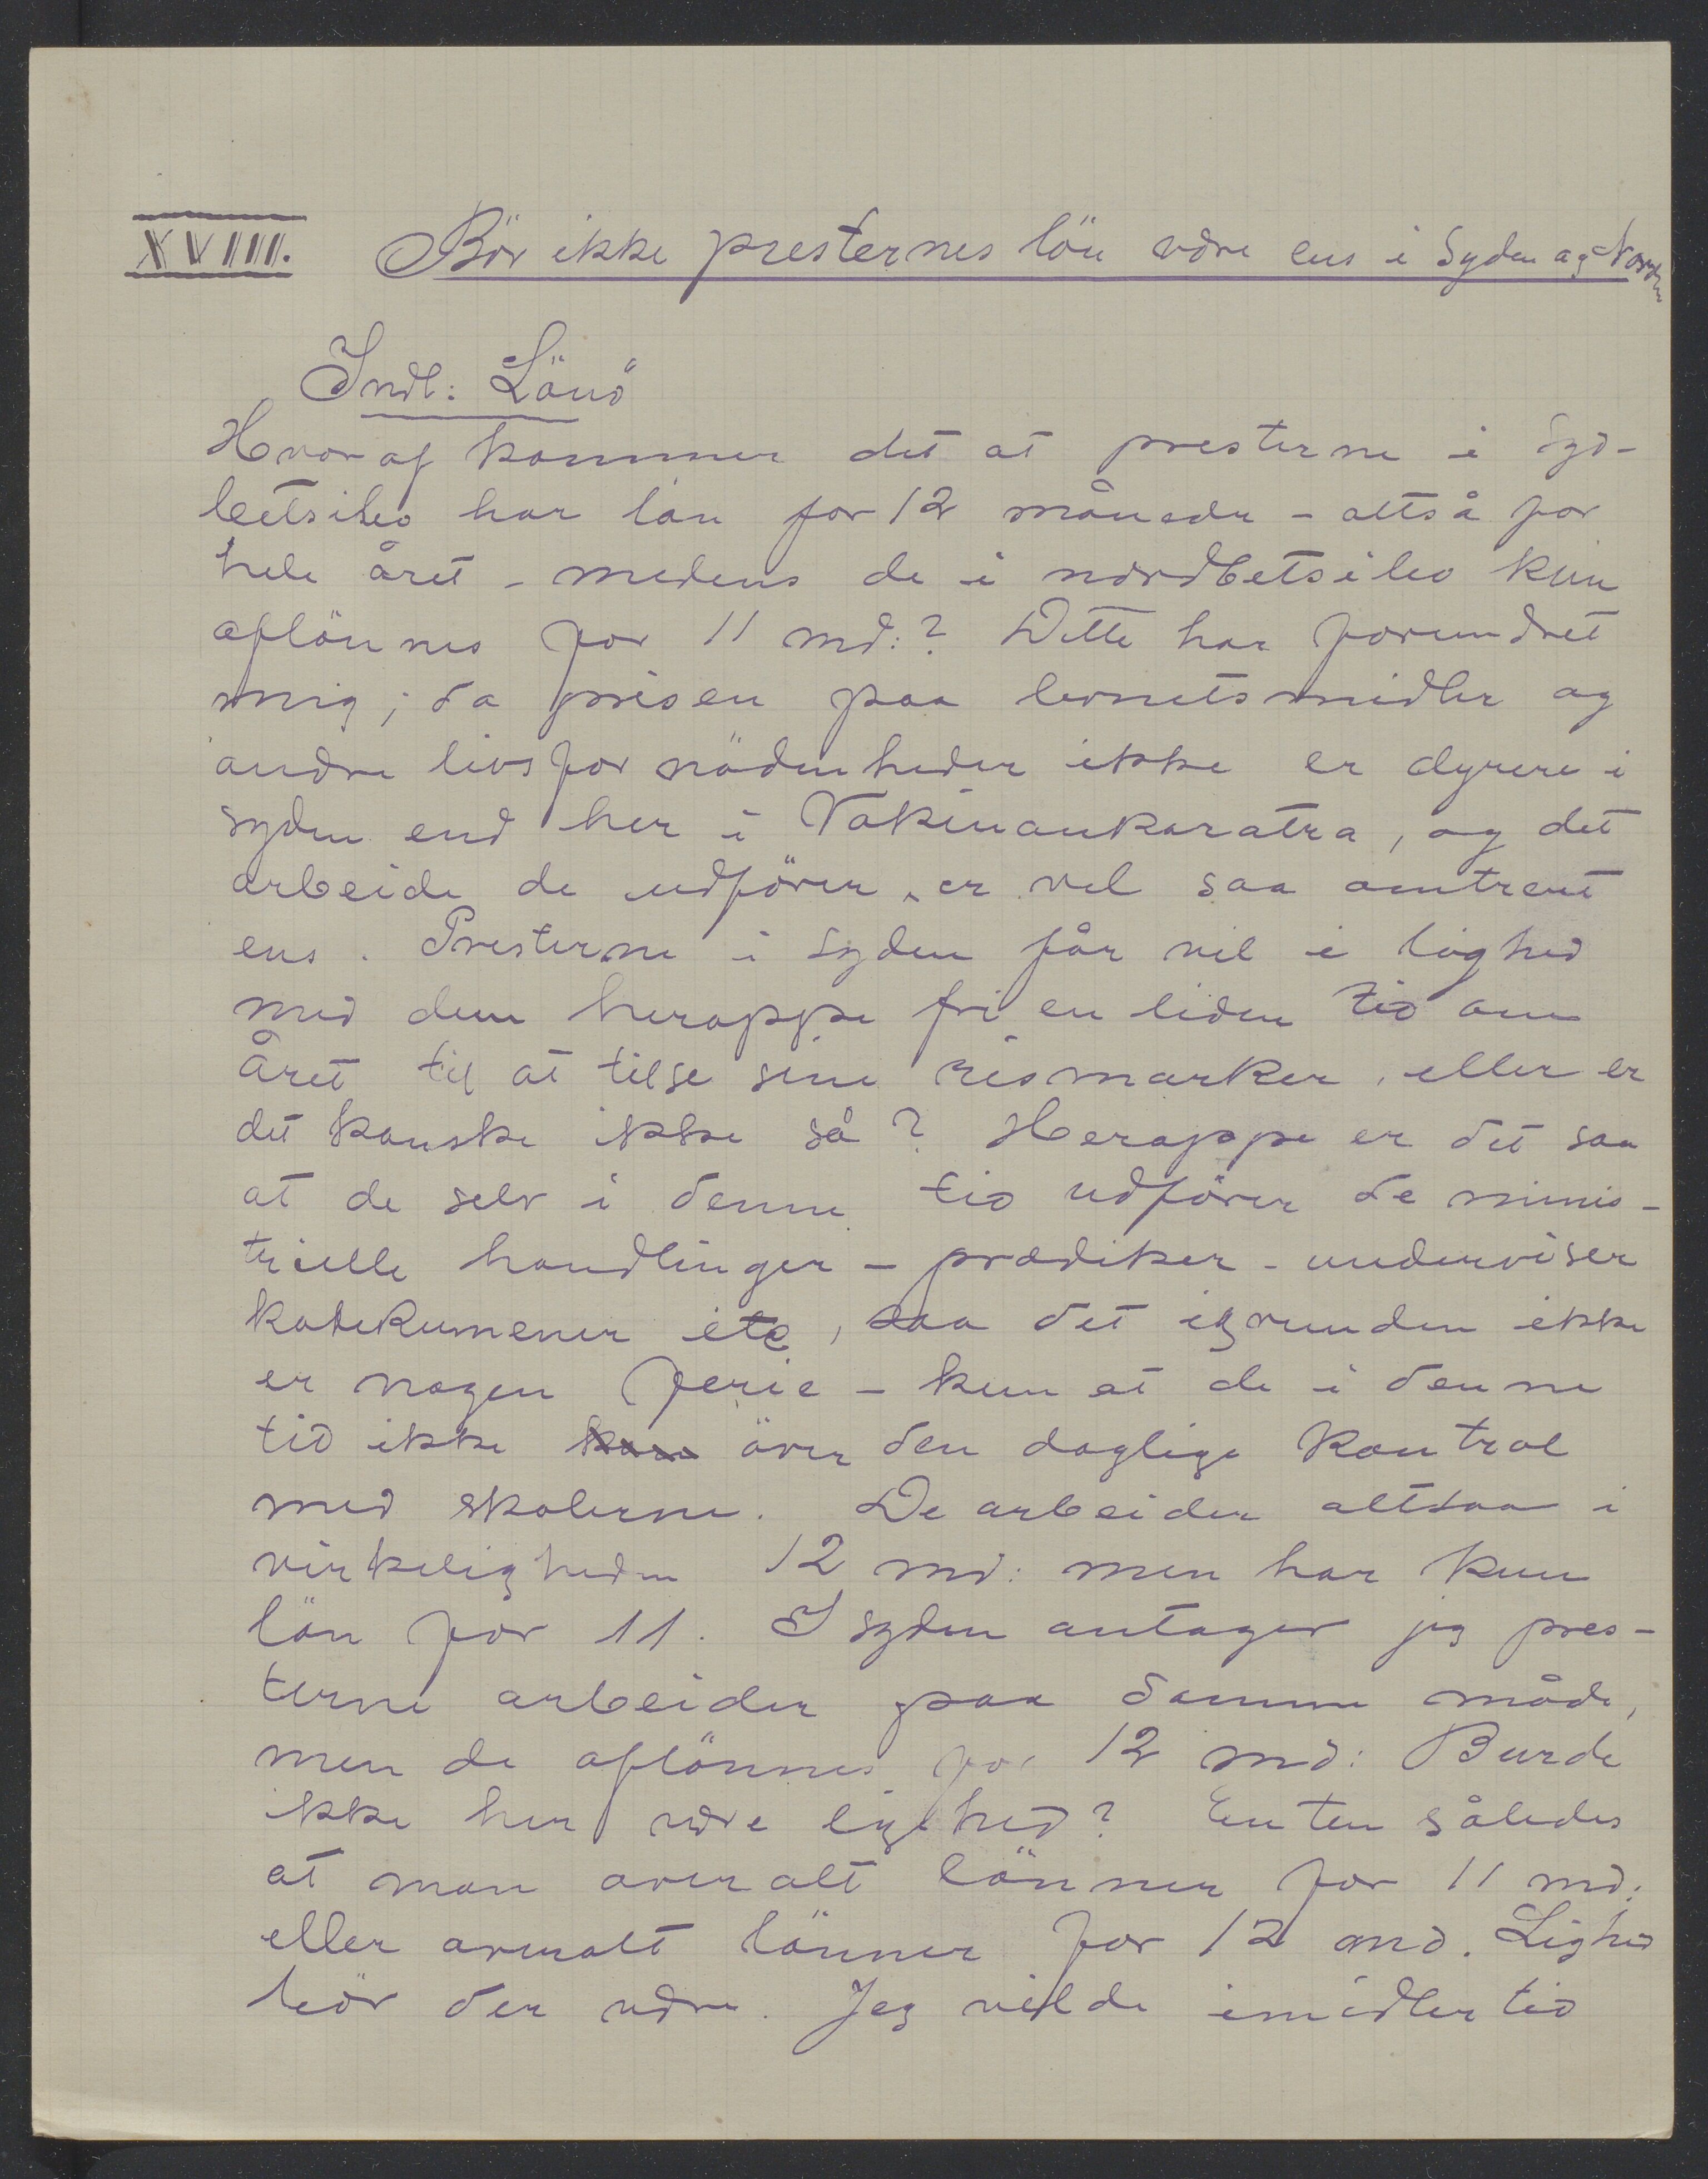 XVIIII. Bör ikke presternes lön være ens i Syden og Norden
Indl: Lönö
Hvoraf kommer det at presterne i Syd-
betsileo har lön for 12 måneder - altså for
hele året - medens de i nordbetsileo kun
aflönnes for 11 md:? Dette har forundret
mig; da prisen paa levnetsmidler og
andre livsfornödenheder ikke er dyrere i
syden end her i Vakinankaratra, og det
arbeide de udförer, er vel saa omtrent
ens. Presterne i Syden får vel i lighed
med dem heroppe fri en liden tid om
Året til at tilse sine rismarker, eller er
det kanske ikke så? Heroppe er det saa
at de selv i denne tid udförer de minis-
trielle handlinger - prædiker - underviser
katekumener etc, saa det igrunden ikke
er nogen ferie - kun at de i denne
tid ikke över den daglige kontrol
med skolerne. De arbeider altsaa i
virkeligheden 12 md: men har kun
lön for 11. I syden antager jeg pres-
terne arbeider paa samme måde,
men de aflönnes for 12 md: Burde
ikke her være lighed? Enten således
at man overalt lönner for 11 md:
eller overalt lönner for 12 md. Lighed
bör der være. Jeg vilde imidlertid